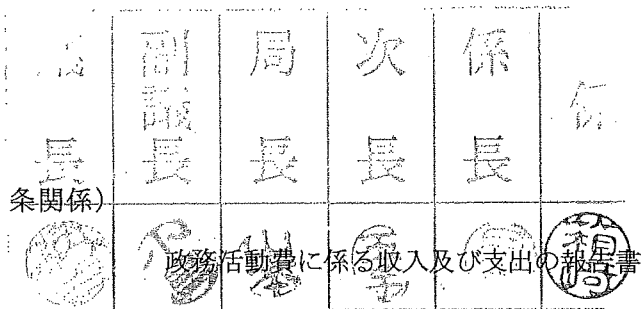 議長 副議長 局長 次長 係長 係
条関係)
政務活動費に係る収入及び支出の報告書